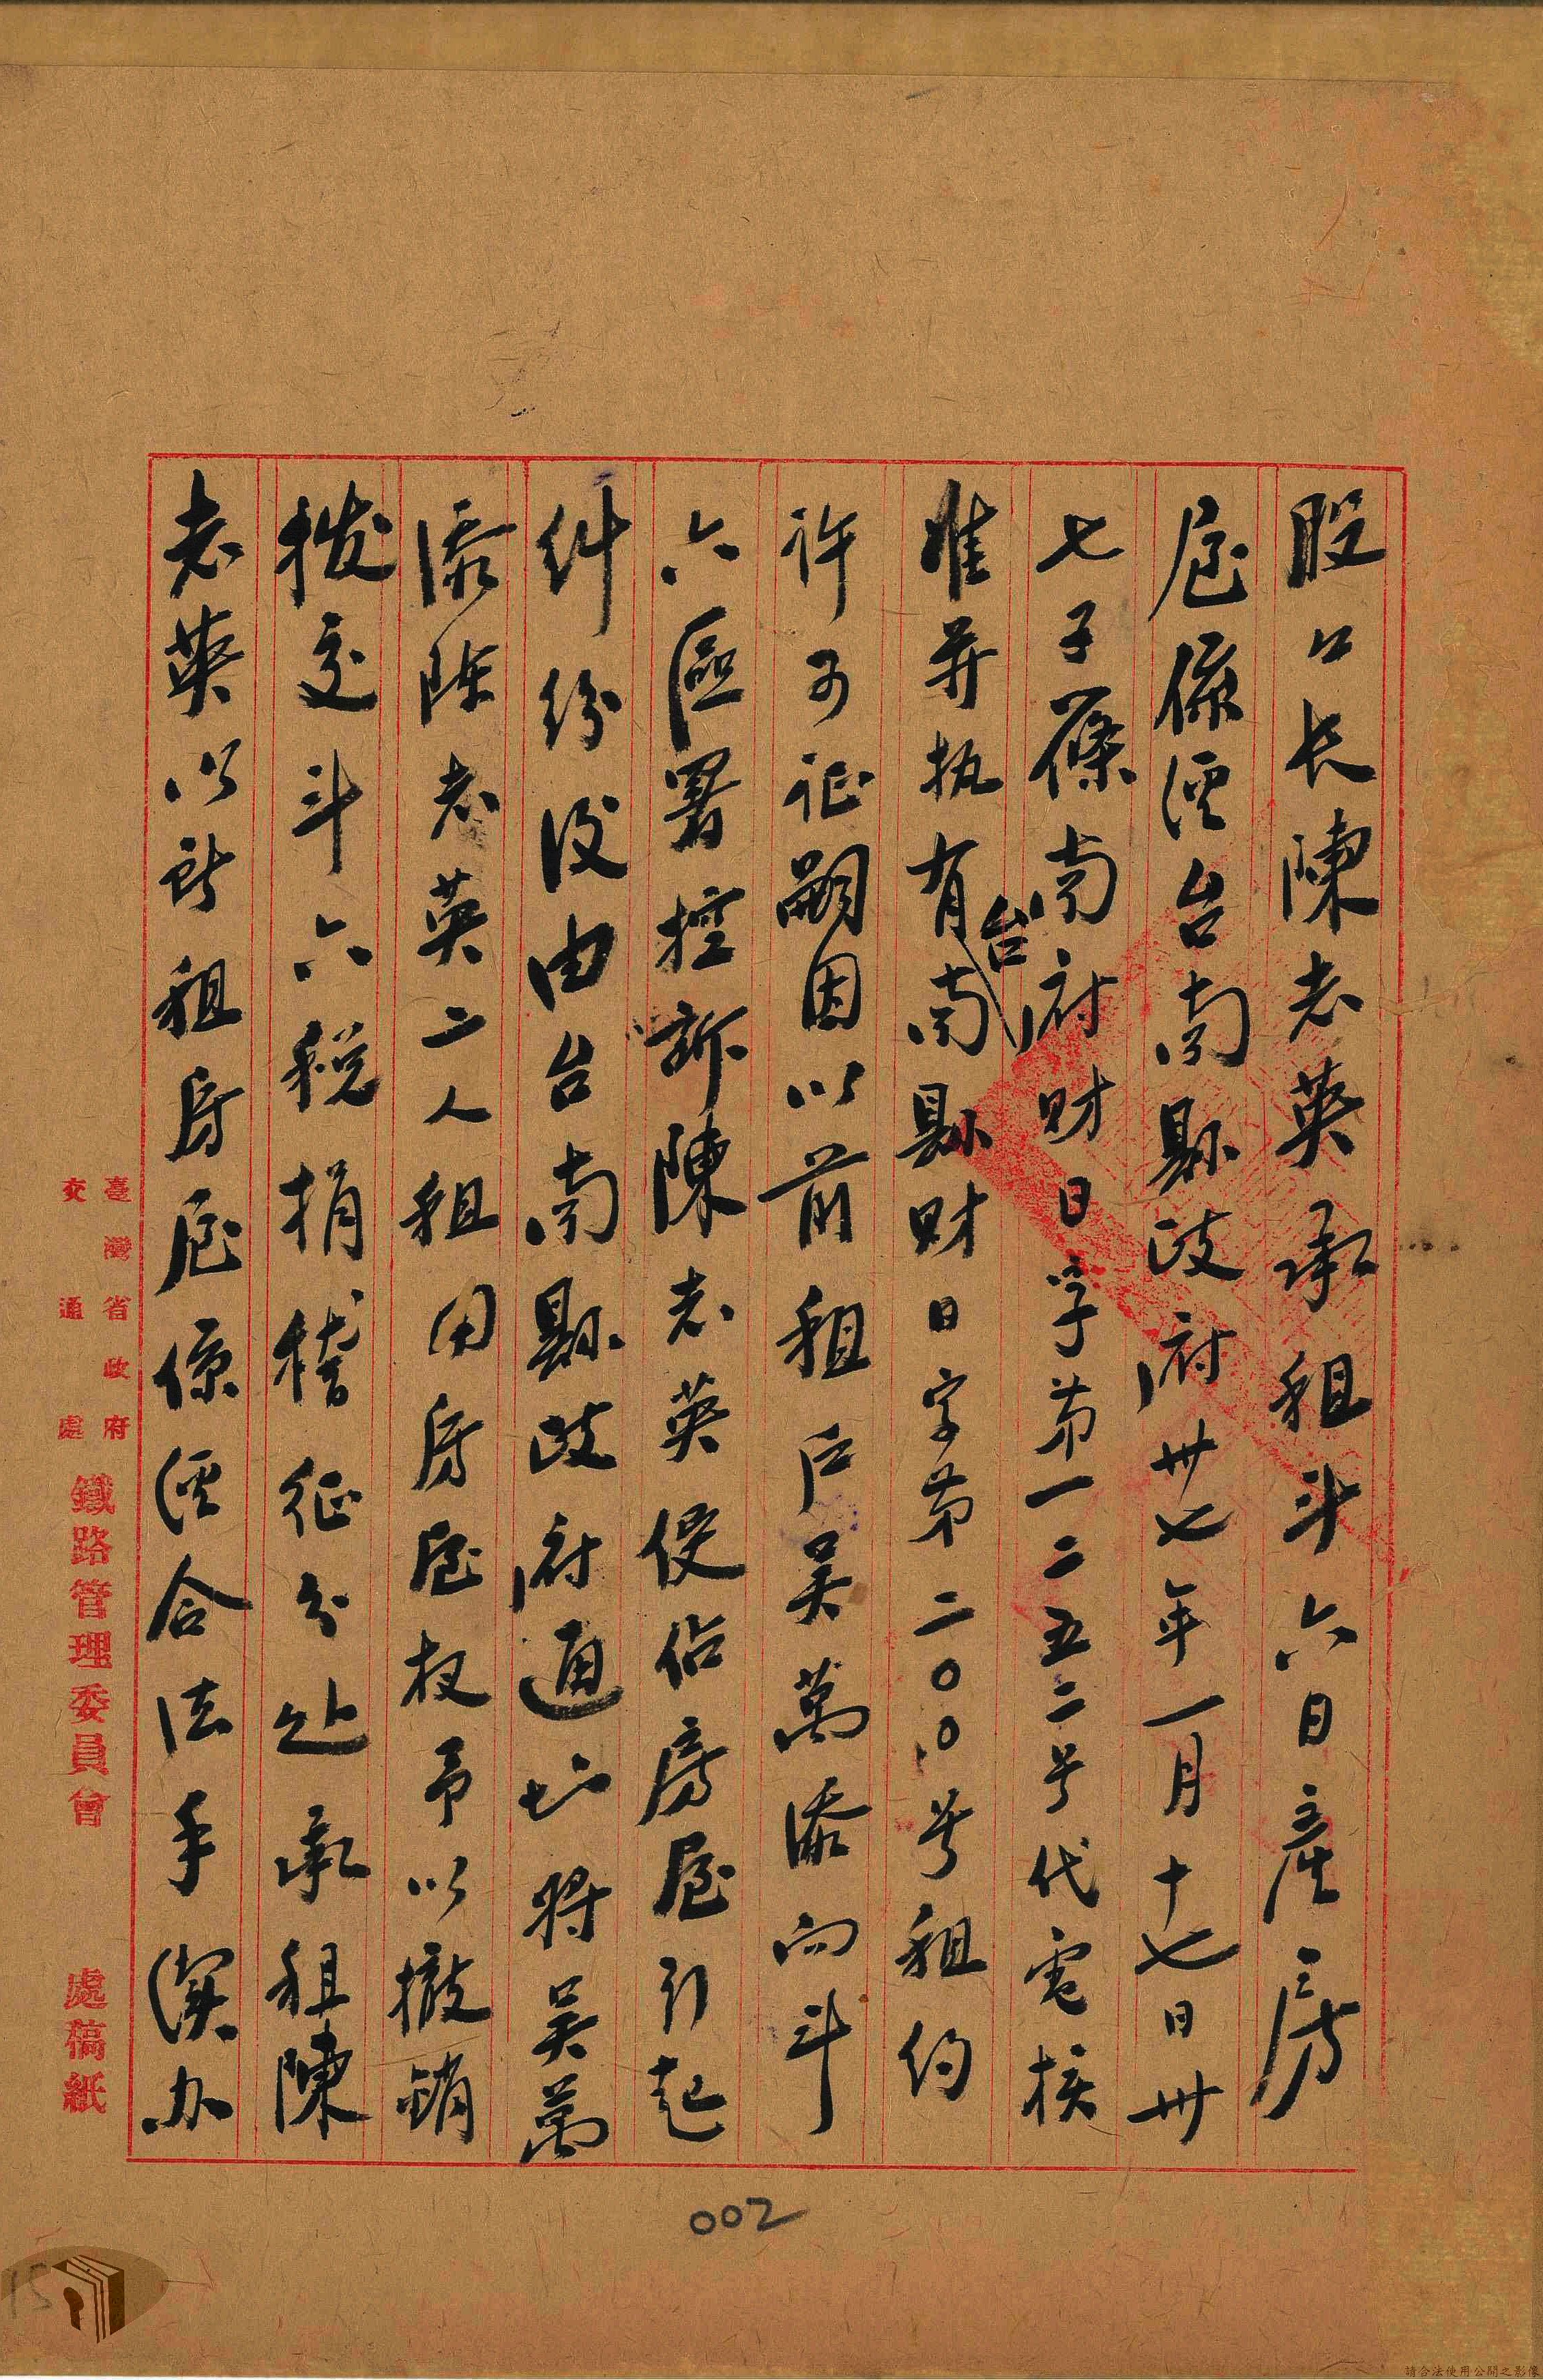 股口长陳志英承租斗六日產房
屋係経台南縣政府卅七年一月十七日卅
七子篠南府财日字第一二五二号代電核
准并执有台南縣财日字第二〇〇号租约
许可证嗣因以前租户吴萬添向斗
六區署控訴陳志英侵佔房屋引起
纠纷後由台南縣政府通知将吴萬
添陈志英二人租用房屋权予以撤銷
拨交斗六税捐稽征分处承租陳
志英以所租房屋係経合法手續办
臺灣省政府
交通處
鐵路管理委員會
處稿紙
002
請合法使用公開之影像